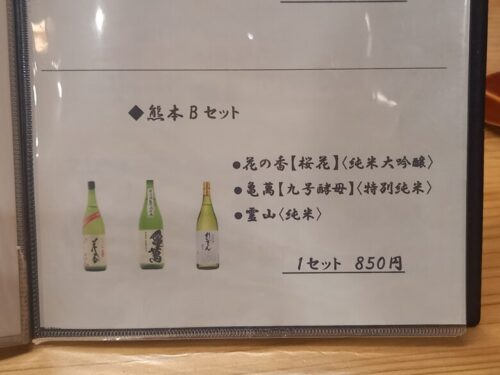 ◆熊本Bセット
●花の香【桜花】〈純米大吟醸〉
●亀萬【九号酵母】〈特別純米〉
●霊山〈純米〉
亀萬
1セット 850円